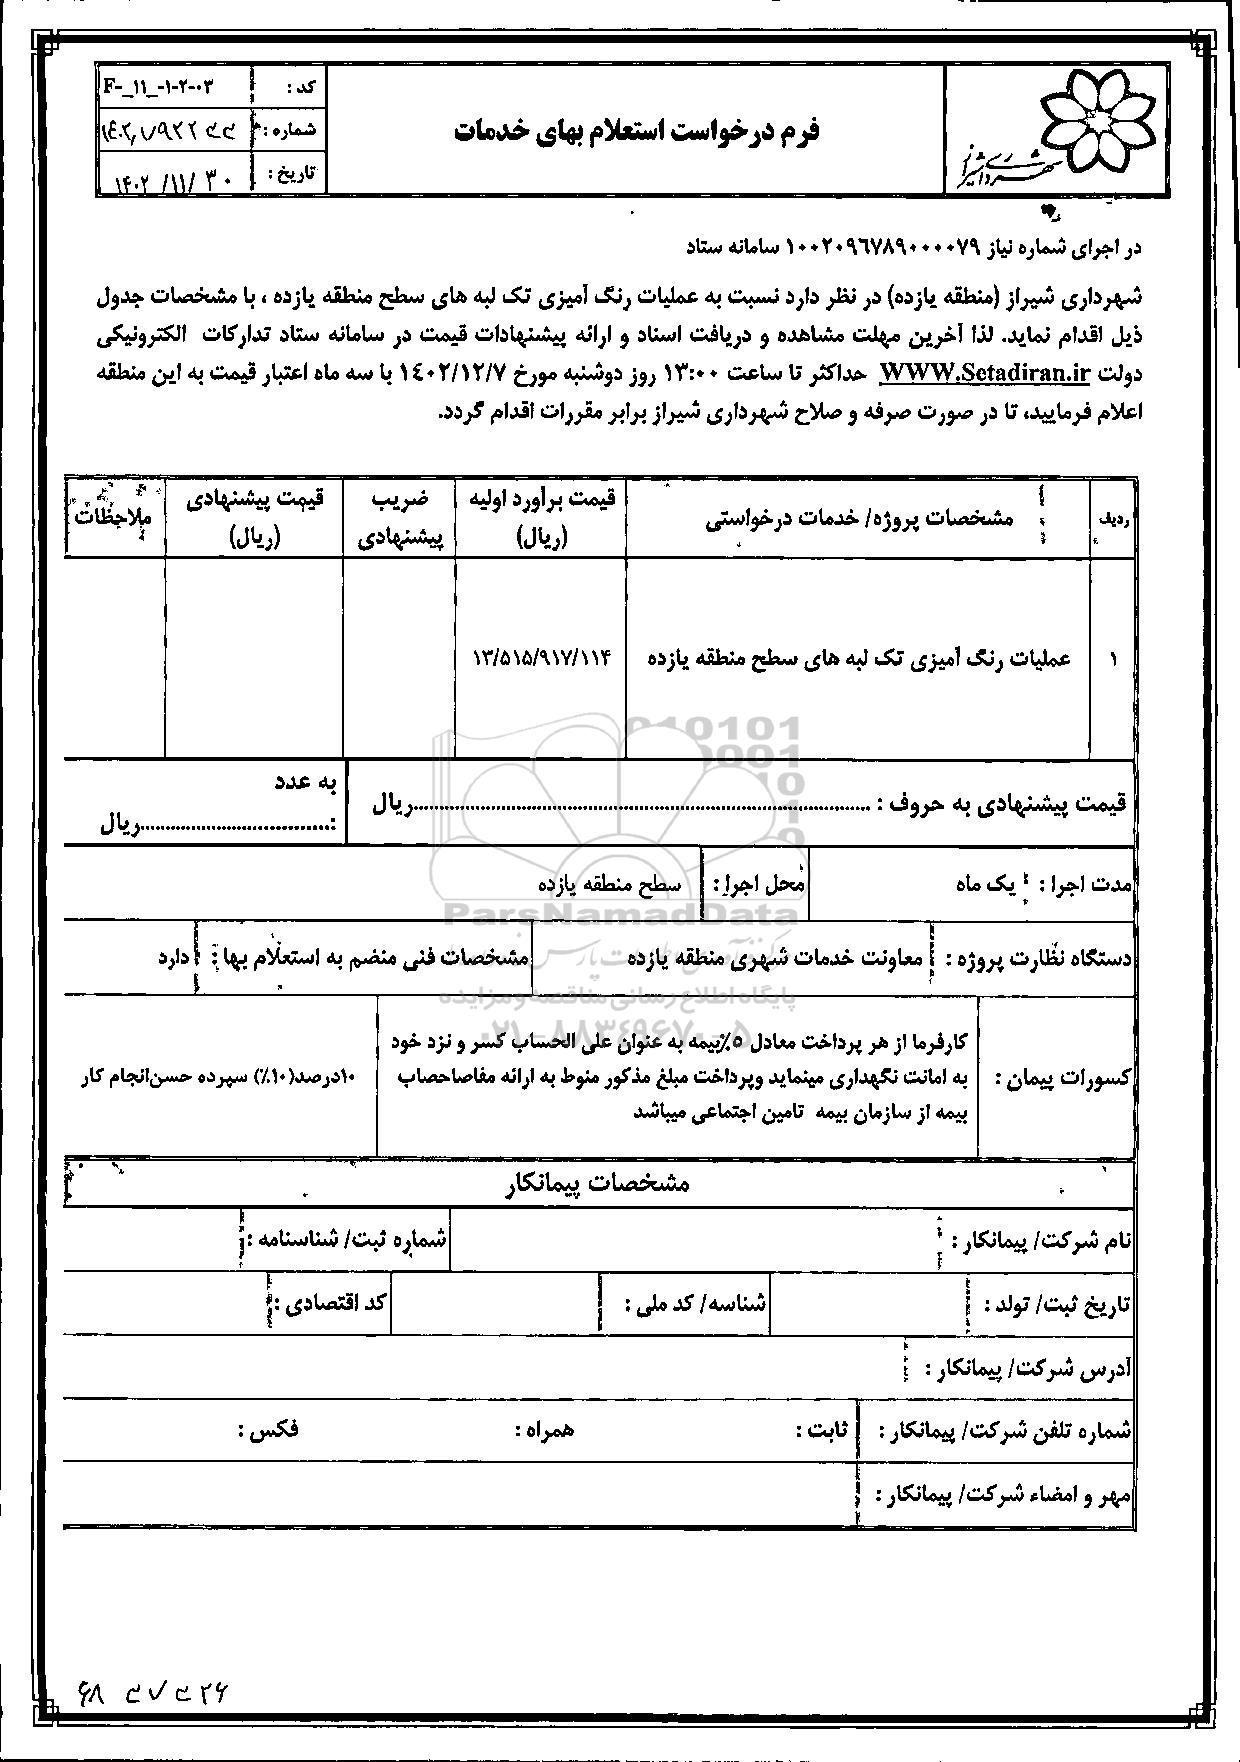 شهرداری شیراز
فرم درخواست استعلام بهای خدمات
کد : F-_۱۱_-۱-۲-۰۳
شماره :
تاریخ : ۱۴۰۲/۱۱/۳۰
در اجرای شماره نیاز ۱۰۰۲۰۹۶۷۸۹۰۰۰۰۷۹ سامانه ستاد
شهرداری شیراز (منطقه یازده) در نظر دارد نسبت به عملیات رنگ آمیزی تک لبه های سطح منطقه یازده ، با مشخصات جدول
ذیل اقدام نماید. لذا آخرین مهلت مشاهده و دریافت اسناد و ارائه پیشنهادات قیمت در سامانه ستاد تدارکات الکترونیکی
دولت WWW.Setadiran.ir حداکثر تا ساعت ۱۳:۰۰ روز دوشنبه مورخ ۱۴۰۲/۱۲/۷ با سه ماه اعتبار قیمت به این منطقه
اعلام فرمایید، تا در صورت صرفه و صلاح شهرداری شیراز برابر مقررات اقدام گردد.
ردیف
مشخصات پروژه/ خدمات درخواستی
قیمت برآورد اولیه
(ریال)
ضریب
پیشنهادی
قیمت پیشنهادی
(ریال)
ملاحظات
۱
عملیات رنگ آمیزی تک لبه های سطح منطقه یازده
۱۳/۵۱۵/۹۱۷/۱۱۴
قیمت پیشنهادی به حروف : ........................................ریال
به عدد
:....................................ریال
مدت اجرا : یک ماه
محل اجرا : سطح منطقه یازده
دستگاه نظارت پروژه : معاونت خدمات شهری منطقه یازده
مشخصات فنی منضم به استعلام بها : دارد
کسورات پیمان :
کارفرما از هر پرداخت معادل ۵٪بیمه به عنوان علی الحساب کسر و نزد خود
به امانت نگهداری مینماید وپرداخت مبلغ مذکور منوط به ارائه مفاصاحصاب
بیمه از سازمان بیمه تامین اجتماعی میباشد
۱۰درصد(۱۰٪) سپرده حسن‌انجام کار
مشخصات پیمانکار
نام شرکت/ پیمانکار :
شماره ثبت/ شناسنامه :
تاریخ ثبت/ تولد :
شناسه/ کد ملی :
کد اقتصادی :
آدرس شرکت/ پیمانکار :
شماره تلفن شرکت/ پیمانکار :
ثابت :
همراه :
فکس :
مهر و امضاء شرکت/ پیمانکار :
ParsNamadData
پایگاه اطلاع رسانی مناقصه و مزایده
۰۲۱-۸۸۳۴۹۶۷۰-۵